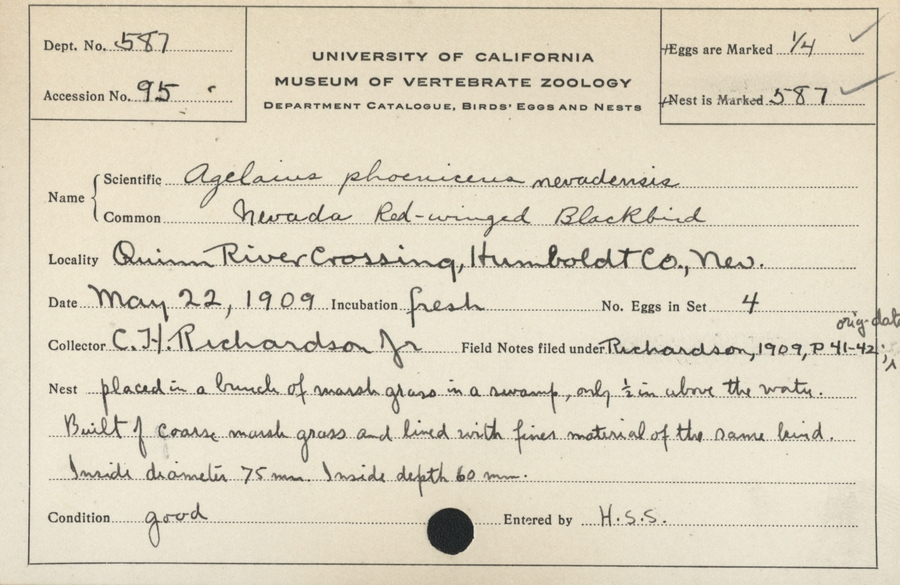 Dept. No. 587
Accession No. 95
UNIVERSITY OF CALIFORNIA
MUSEUM OF VERTEBRATE ZOOLOGY
DEPARTMENT CATALOGUE, BIRDS' EGGS AND NESTS
Eggs are Marked 1/4
Nest is Marked 587
Name
Scientific Agelaius phoeniceus nevadensis
Common Nevada Red-winged Blackbird
Locality Quinn River Crossing, Humboldt Co., Nev.
Date May 22, 1909 Incubation fresh No. Eggs in Set 4
orig. data
Collector C. H. Richardson Jr Field Notes filed under Richardson, 1909, P 41-42;
Nest placed in a bunch of marsh grass in a swamp, only ½ in above the water.
Built of coarse marsh grass and lined with finer material of the same kind.
Inside diameter 75 mm. Inside depth 60 mm.
Condition good Entered by H.S.S.